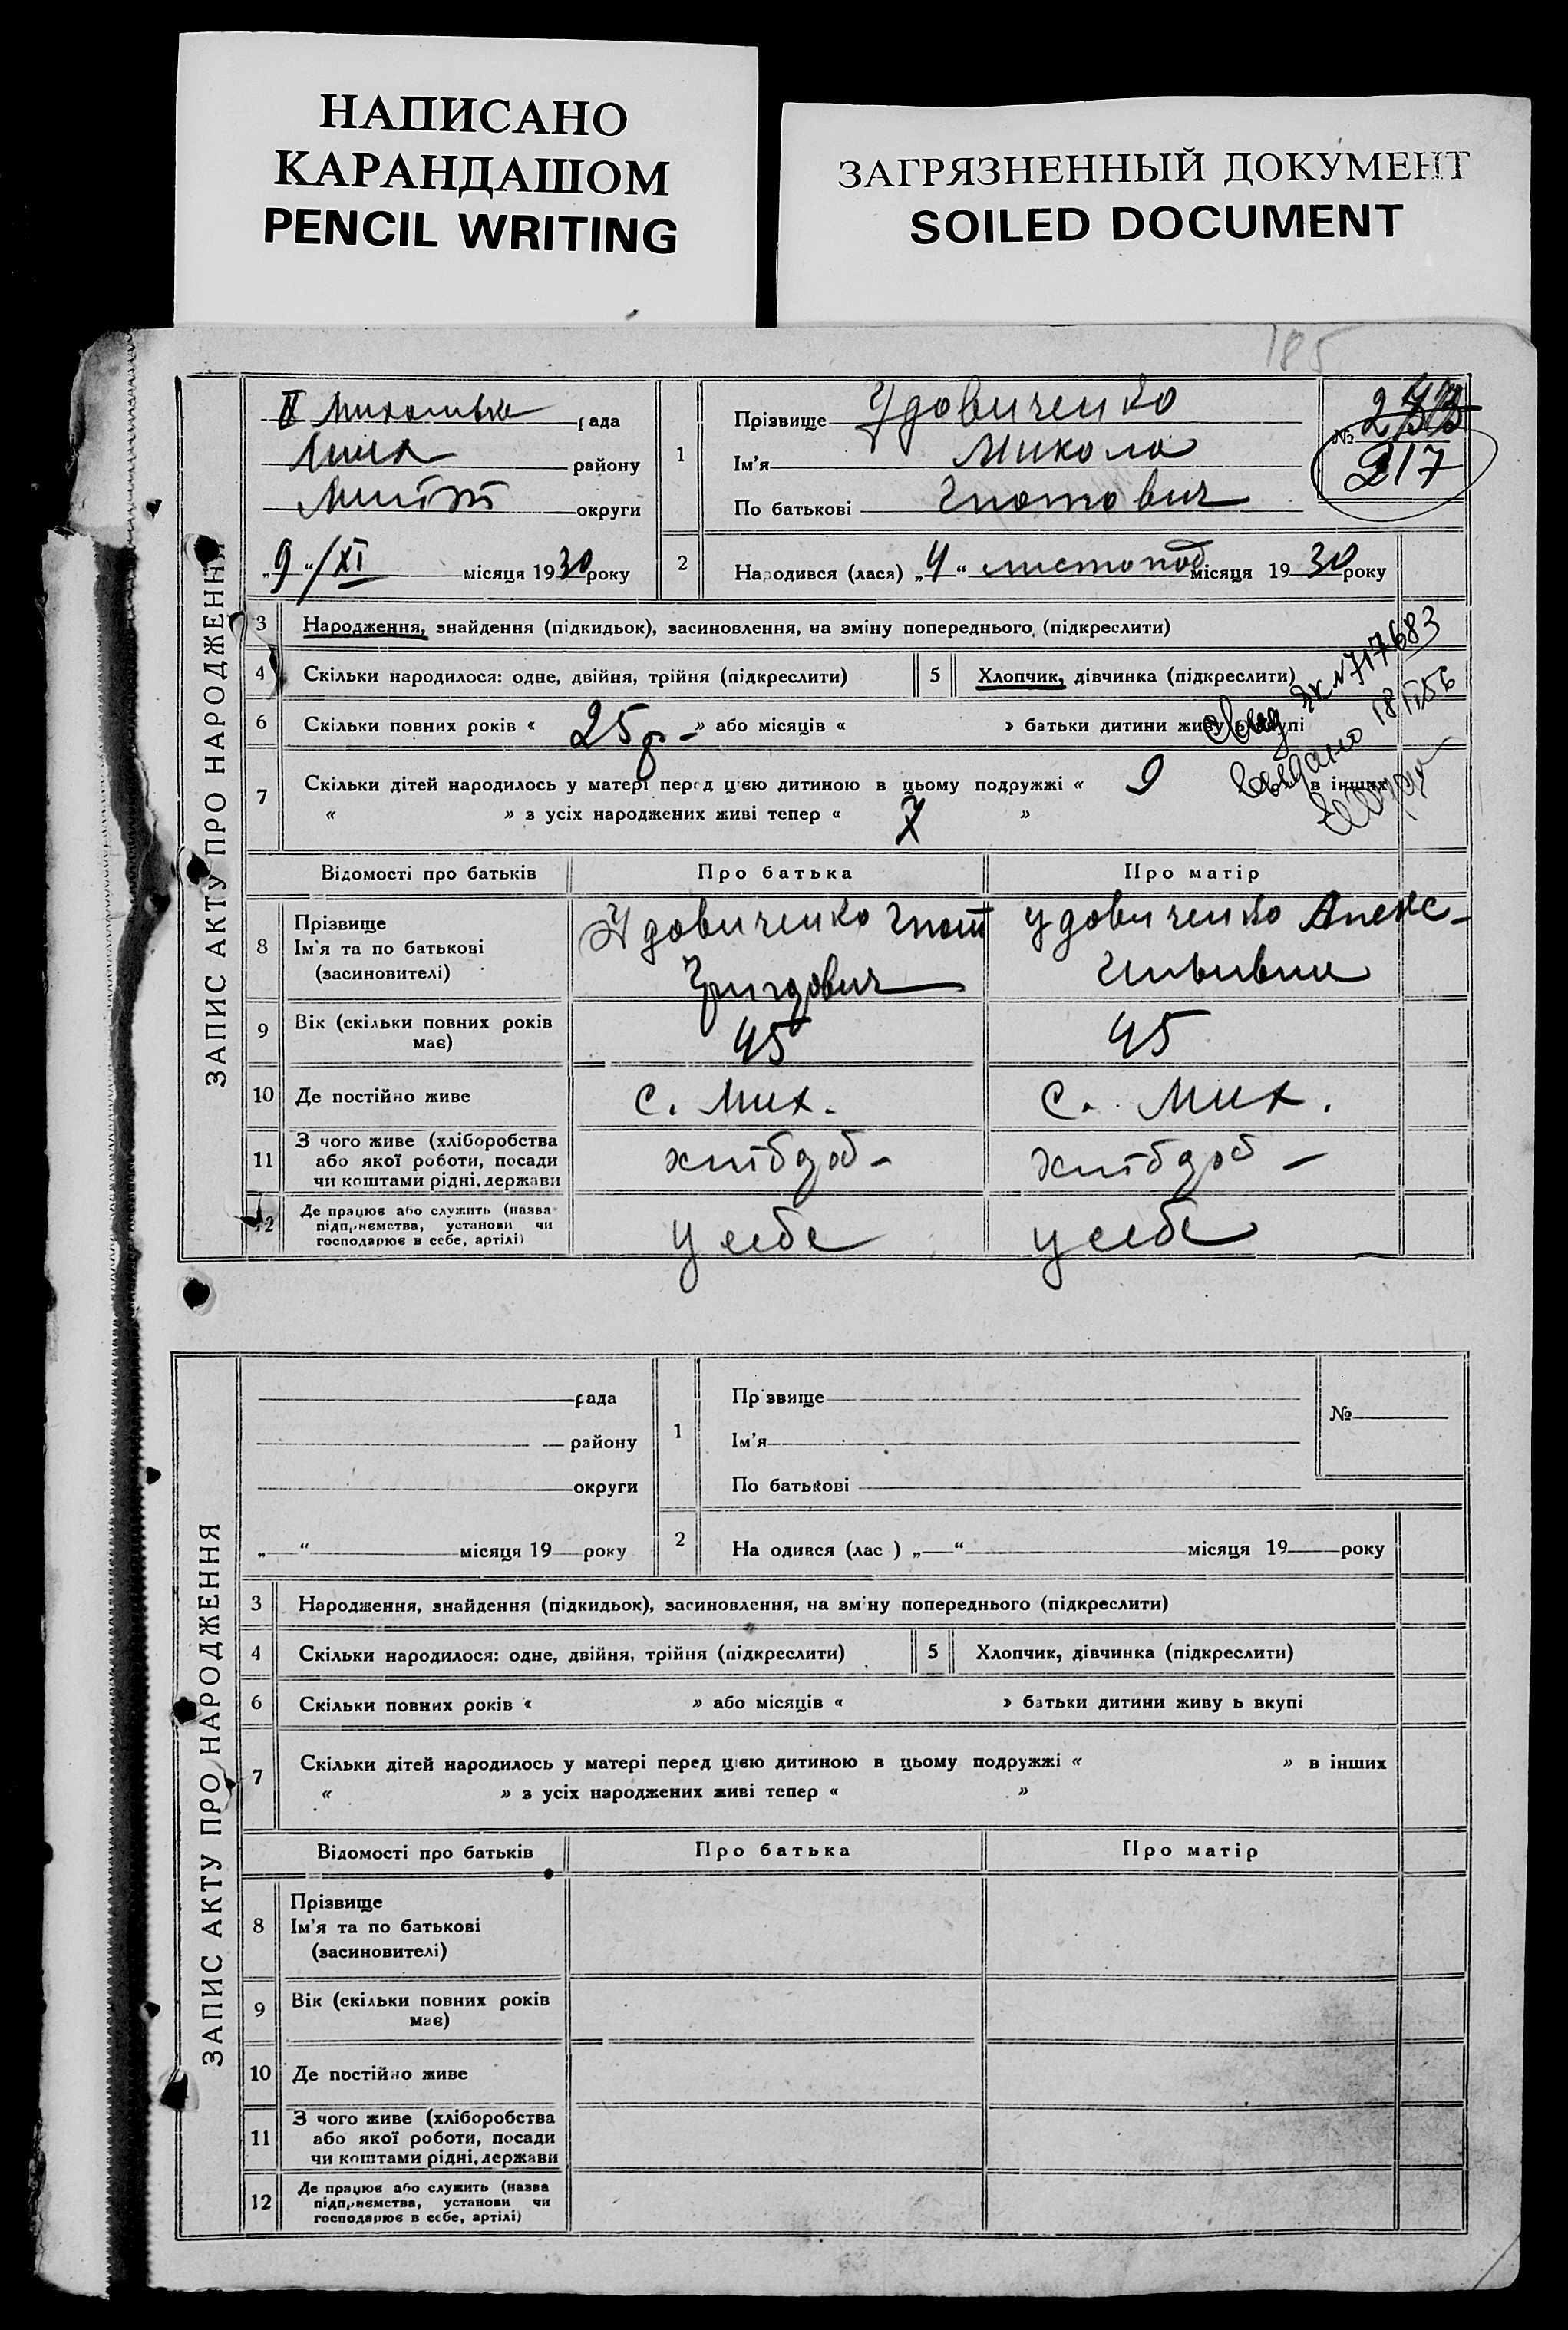 НАПИСАНО
КАРАНДАШОМ
PENCIL WRITING
ЗАГРЯЗНЕННЫЙ ДОКУМЕНТ
SOILED DOCUMENT
185
ЗАПИС АКТУ ПРО НАРОДЖЕННЯ
II рада
району
округи
„9“ / XI місяця 1930 року
1
Прізвище Удовиченко
Ім'я Микола
По батькові Гнатович
№ 217
2
Народився (лася) „4“ листопад місяця 1930 року
3 Народження, знайдення (підкидьок), засиновлення, на зміну попереднього (підкреслити)
4 Скільки народилося: одне, двійня, трійня (підкреслити)
5 Хлопчик, дівчинка (підкреслити)
6 Скільки повних років « 25 р – » або місяців « » батьки дитини живуть вкупі
717683
18
56
7 Скільки дітей народилось у матері перед цією дитиною в цьому подружжі « 9 в інших
« » з усіх народжених живі тепер « 7 »
Відомості про батьків Про батька Про матір
8 Прізвище
Ім'я та по батькові
(засиновителі)
Удовиченко Гнат
Удовиченко
9 Вік (скільки повних років
має)
45 45
10 Де постійно живе с. Мих. с. Мих.
11 З чого живе (хліборобства
або якої роботи, посади
чи коштами рідні, держави
12 Де працює або служить (назва
підприємства, установи чи
господарює в себе, артілі)
у себе у себе
ЗАПИС АКТУ ПРО НАРОДЖЕННЯ
рада
району
округи
„ “ місяця 19 року
1
Прізвище
Ім'я
По батькові
№
2
На одився (лас ) „ “ місяця 19 року
3 Народження, знайдення (підкидьок), засиновлення, на зміну попереднього (підкреслити)
4 Скільки народилося: одне, двійня, трійня (підкреслити)
5 Хлопчик, дівчинка (підкреслити)
6 Скільки повних років « » або місяців « » батьки дитини живу ь вкупі
7 Скільки дітей народилось у матері перед цією дитиною в цьому подружжі « » в інших
« » з усіх народжених живі тепер « »
Відомості про батьків Про батька Про матір
8 Прізвище
Ім'я та по батькові
(засиновителі)
9 Вік (скільки повних років
має)
10 Де постійно живе
11 З чого живе (хліборобства
або якої роботи, посади
чи коштами рідні, держави
12 Де працює або служить (назва
підприємства, установи чи
господарює в себе, артілі)